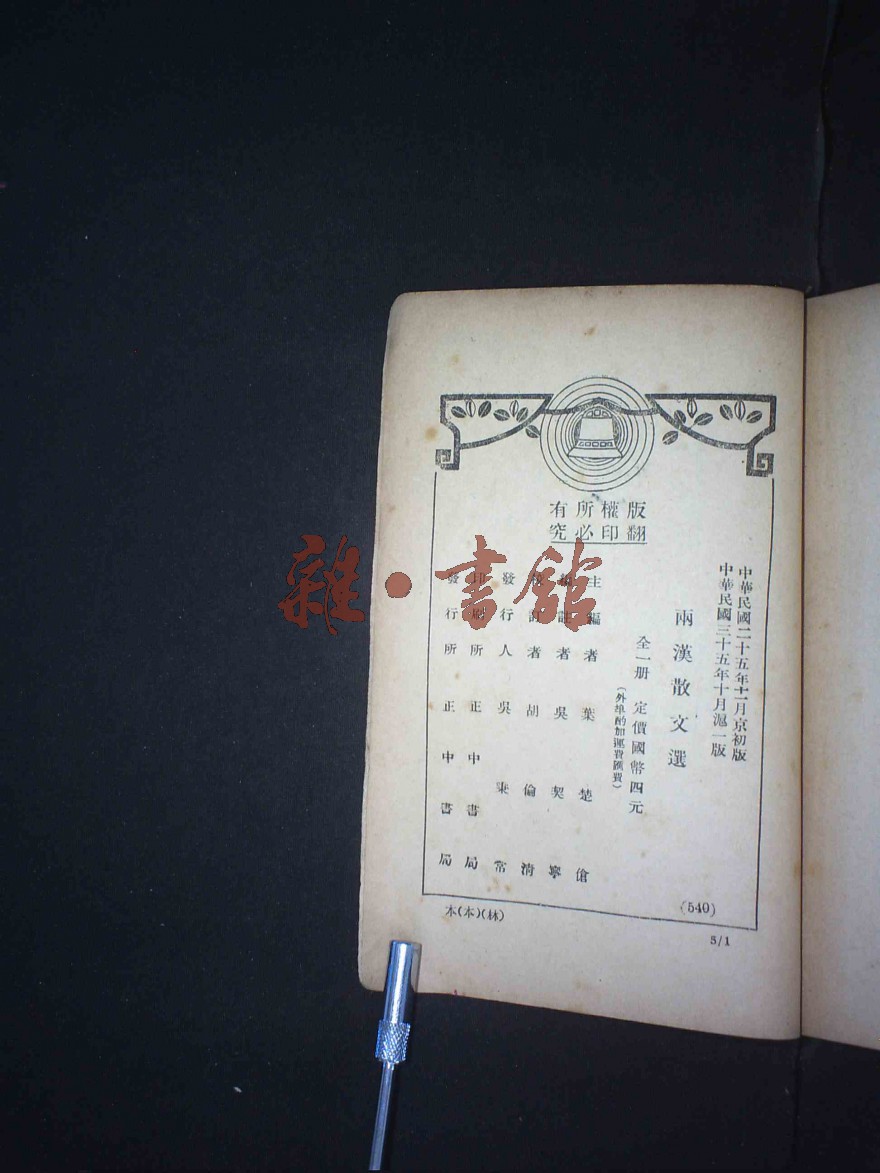 版權所有
翻印必究
中華民國二十五年十一月京初版
中華民國三十五年十月滬一版
兩漢散文選
全一册 定價國幣四元
(外埠酌加運費匯費)
主編者 葉楚傖
編註者 吳契寧
校訂者 胡倫清
發行人 吳秉常
印刷所 正中書局
發行所 正中書局
(540)
本(本)(林)
5/1
雜·書館